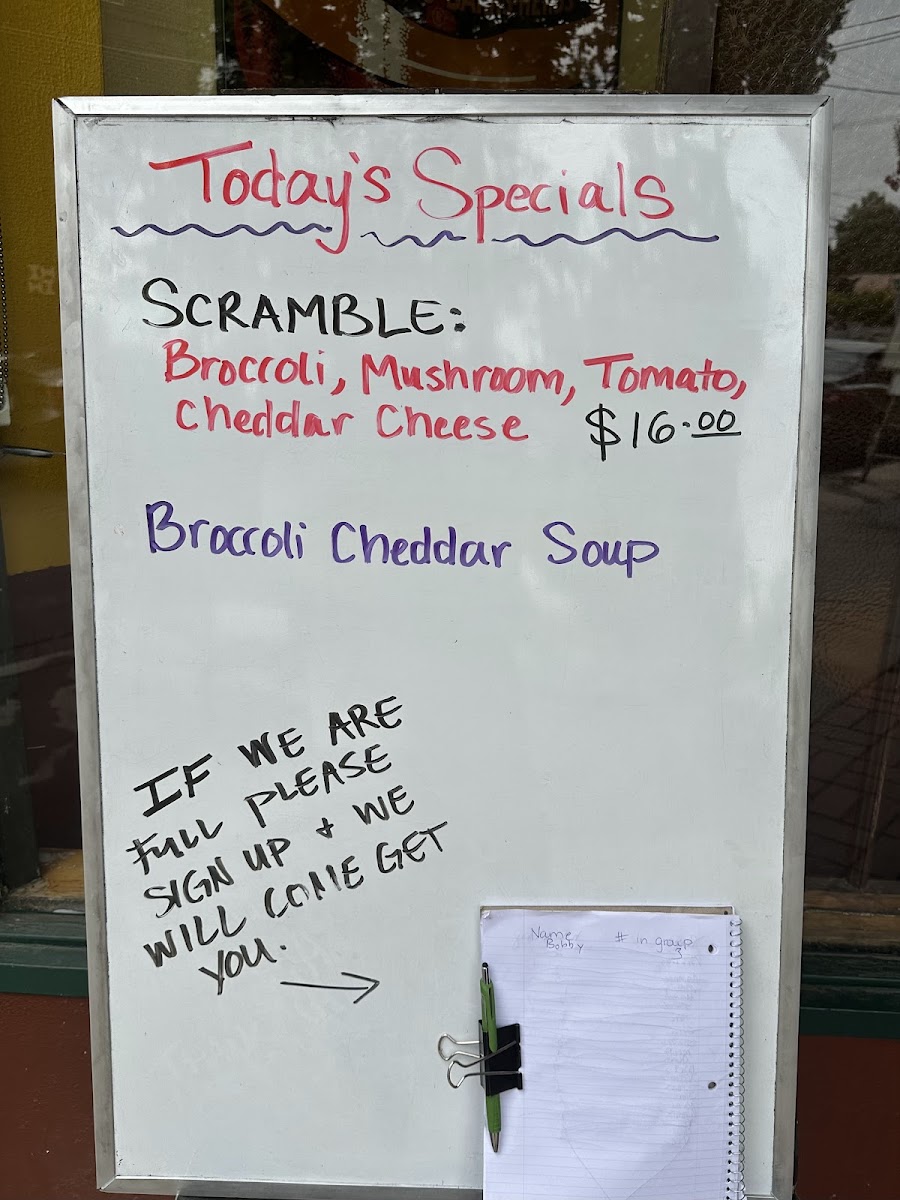 Today's Specials
SCRAMBLE:
Broccoli, Mushroom, Tomato,
Cheddar Cheese $16.00
Broccoli Cheddar Soup
IF WE ARE
FULL PLEASE
SIGN UP + WE
WILL COME GET
YOU.
Name # in group
Bobby 3